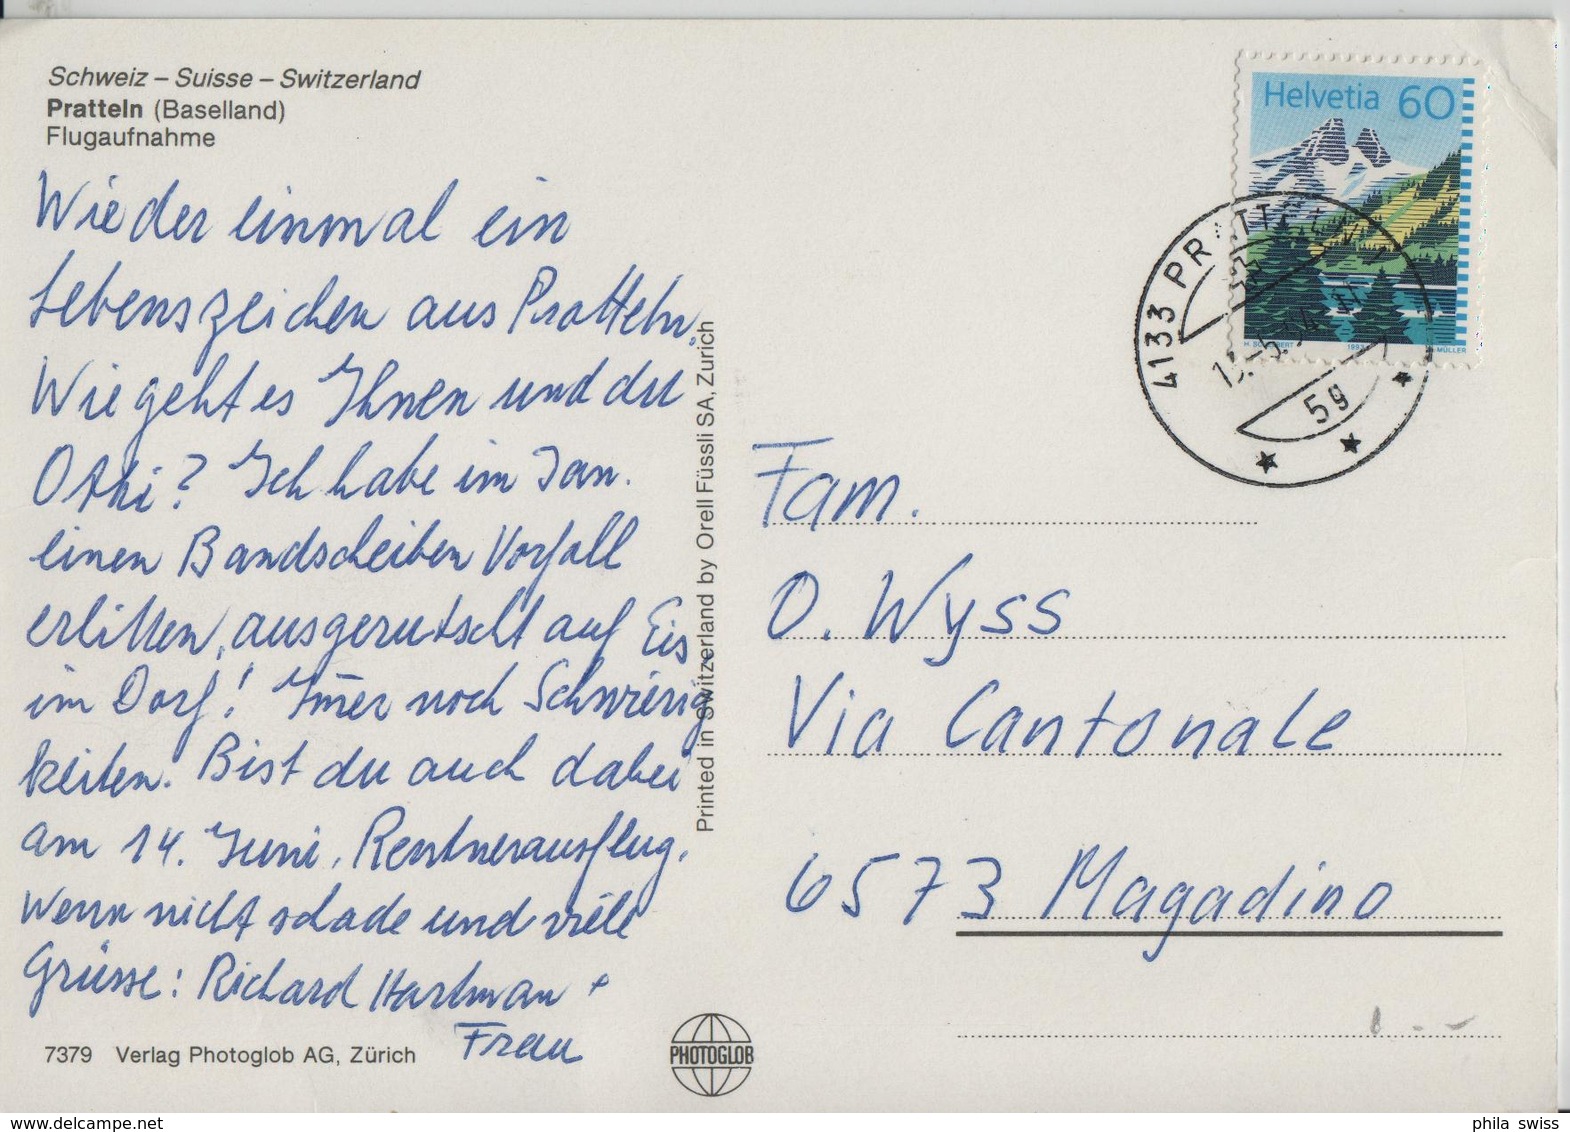 Schweiz – Suisse – Switzerland
Pratteln (Baselland)
Flugaufnahme
Wieder einmal ein
Lebenszeichen aus Pratteln.
Wie geht es Ihnen und du
Othi? Ich habe im Jan.
einen Bandscheiben Vorfall
erlitten, ausgerutscht auf Eis
im Dorf! Im̄er noch Schwierig
keiten. Bist du auch dabei
am 14. Juni, Rentnerausflug.
Wenn nicht schade und viele
Grüsse: Richard Hartman +
Frau
7379 Verlag Photoglob AG, Zürich
Printed in Switzerland by Orell Füssli SA, Zurich
PHOTOGLOB
Helvetia 60
1993
MÜLLER
4133 PRATT
5g
Fam.
O. Wyss
Via Cantonale
6573 Magadino
phila swiss